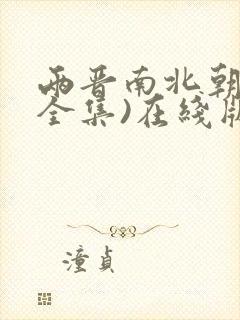 两晋南北朝
全集)在线版
潼贞